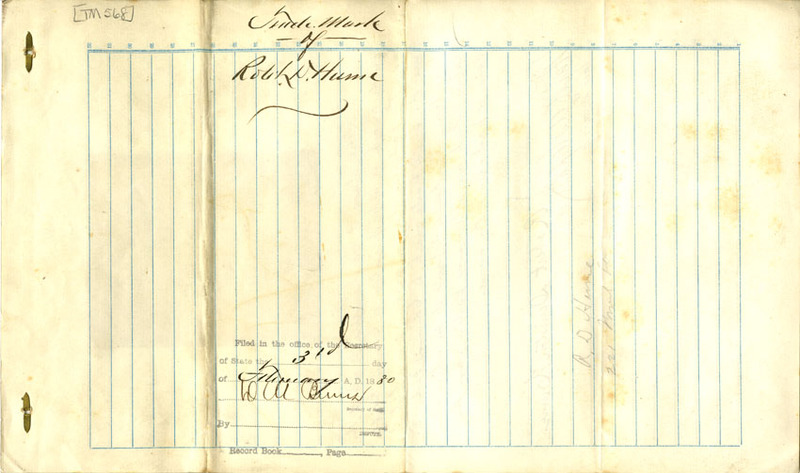 [TM 568]
Trade Mark
of
Robt. D. Hume
Filed in the office of the Secretary
of State the 3rd day
of February A. D. 1880
D M Burns
Secretary of State
By
Deputy.
Record Book Page
R D Hume